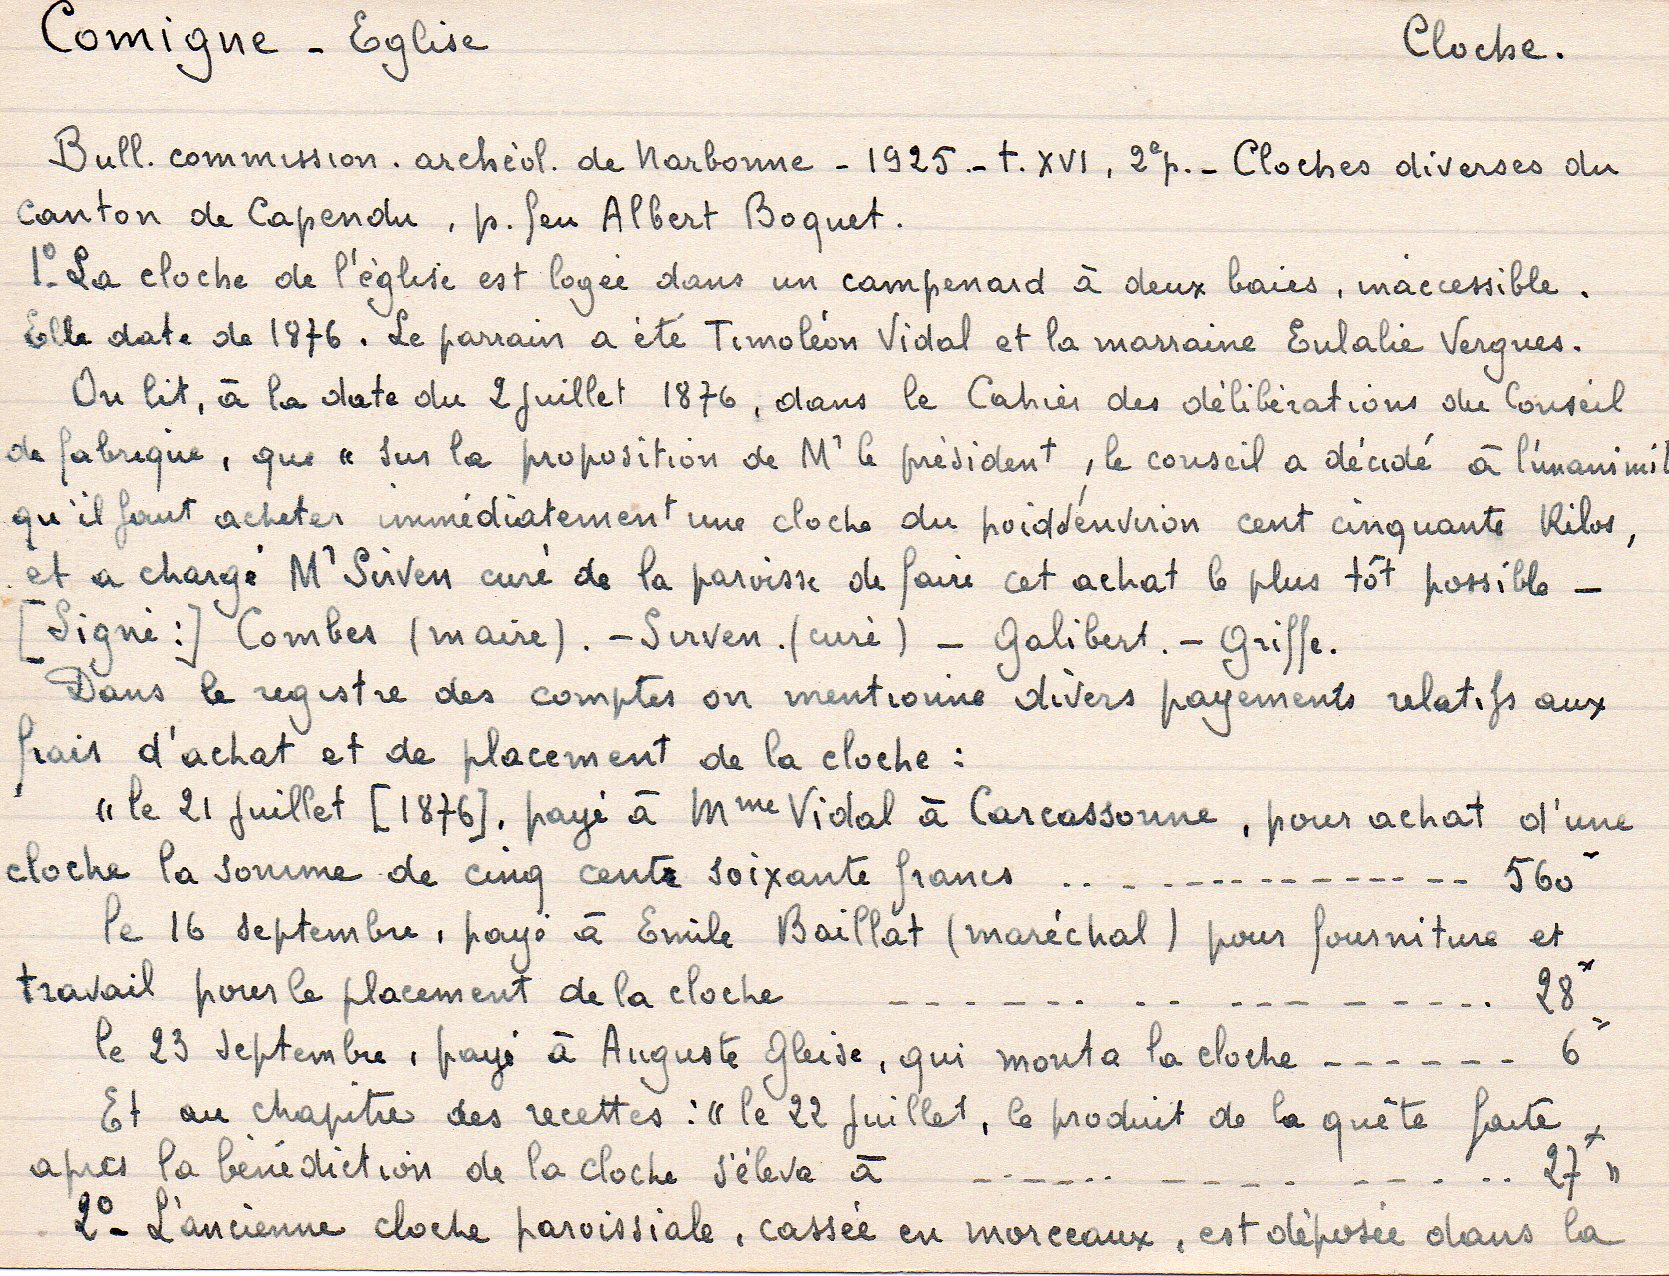 Comigne - Eglise Cloche.
Bull. commission. archéol. de Narbonne - 1925.- t. XVI, 2e p. - Cloches diverses du
canton de Capendu, p. feu Albert Boquet.
1°- La cloche de l'église est logée dans un campenard à deux baies, inaccessible.
Elle date de 1876. Le parrain a été Timoléon Vidal et la marraine Eulalie Vergues.
On lit, à la date du 2 juillet 1876, dans le Cahier des délibérations du Conseil
de fabrique, que " sur la proposition de Mr le président, le conseil a décidé à l'unanimit
qu'il faut acheter immédiatement une cloche du poids d'environ cent cinquante Kilos,
et a chargé Mr Sirven curé de la paroisse de faire cet achat le plus tôt possible -
[Signé :] Combes (maire). - Sirven. (curé) - Galibert. - Griffe.
Dans le registre des comptes on mentionne divers payements relatifs aux
frais d'achat et de placement de la cloche :
" le 21 juillet [1876], payé à Mme Vidal à Carcassonne, pour achat d'une
cloche la somme de cinq cents soixante francs .. - - - - - - - - - - - - - 560
le 16 septembre, payé à Emile Baillat (maréchal) pour fourniture et
travail pour le placement de la cloche - - - - - - - - - - - - - - - 28
le 23 septembre, payé à Auguste Gleise, qui monta la cloche - - - - - - 6
Et au chapitre des recettes : " le 22 juillet, le produit de la quête faite
après la bénédiction de la cloche s'éleva à - - - - - - - - - - - - - - 27 "
2°- L'ancienne cloche paroissiale, cassée en morceaux, est déposée dans la